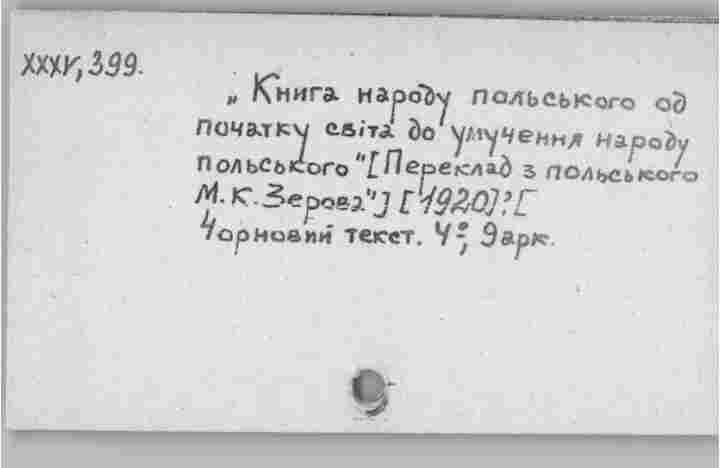 XXXV, 399.
„Книга народу польського од
початку світа до умучення народу
польського" [Переклад з польського
М.К.Зерова"] ['1920]?[
Чорновий текст. 4°, 9 арк.